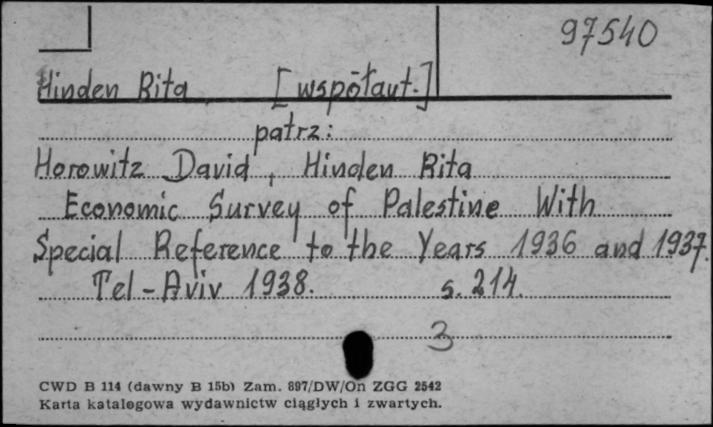 97540
Hinden Rita [współaut.]
patrz:
Horowitz David, Hinden Rita
Economic Survey of Palestine With
Special Reference to the Years 1936 and 1937.
Tel-Aviv 1938. s. 214.
3
CWD B 114 (dawny B 15b) Zam. 897/DW/On ZGG 2542
Karta katalogowa wydawnictw ciągłych i zwartych.